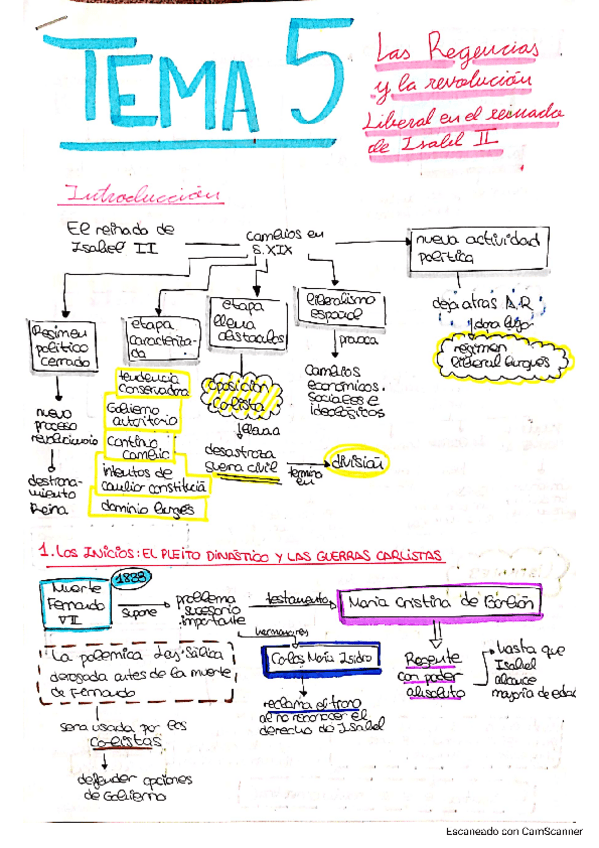 TEMA 5
Las Regencias
y la revolución
Liberal en el reinado
de Isabel II
Introducción
El reinado de
Isabel II
cambios en
S.XIX
nueva actividad
política
deja atras A.R
da lugar
régimen
liberal burgués
Regimen
politico
cerrado
etapa
caracteriza-
da
etapa
llena
obstaculos
liberalismo
español
provoca
cambios
economicos,
sociales e
ideológicos
nuevo
proceso
revolucionario
destrona-
miento
Reina
tendencia
conservadora
Gobierno
autoritario
Continuo
cambio
intentos de
cambiar constitución
dominio burgués
oposición
carlista
llevará
desastroza
guerra civil
termina
en
división
1. Los INICIOS: EL PLEITO DINÁSTICO Y LAS GUERRAS CARLISTAS
Muerte
Fernando
VII
1833
supone
problema
sucesorio
importante
testamento
María Cristina de Borbón
hermano
Carlos María Isidro
reclama el trono
al no reconocer el
derecho de Isabel
Regente
con poder
absoluto
hasta que
Isabel
alcance
mayoría de edad
La polemica Ley Sálica
derogada antes de la muerte
de Fernando
sera usada por los
Carlistas
defender opciones
de Gobierno
Escaneado con CamScanner